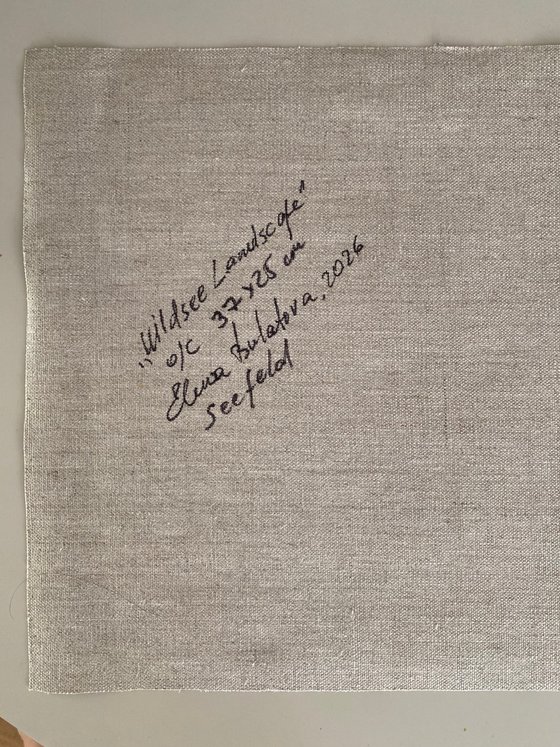 „Wildsee Landscape"
o/c 37x25 cm
Elena Bulatova, 2026
Seefeld